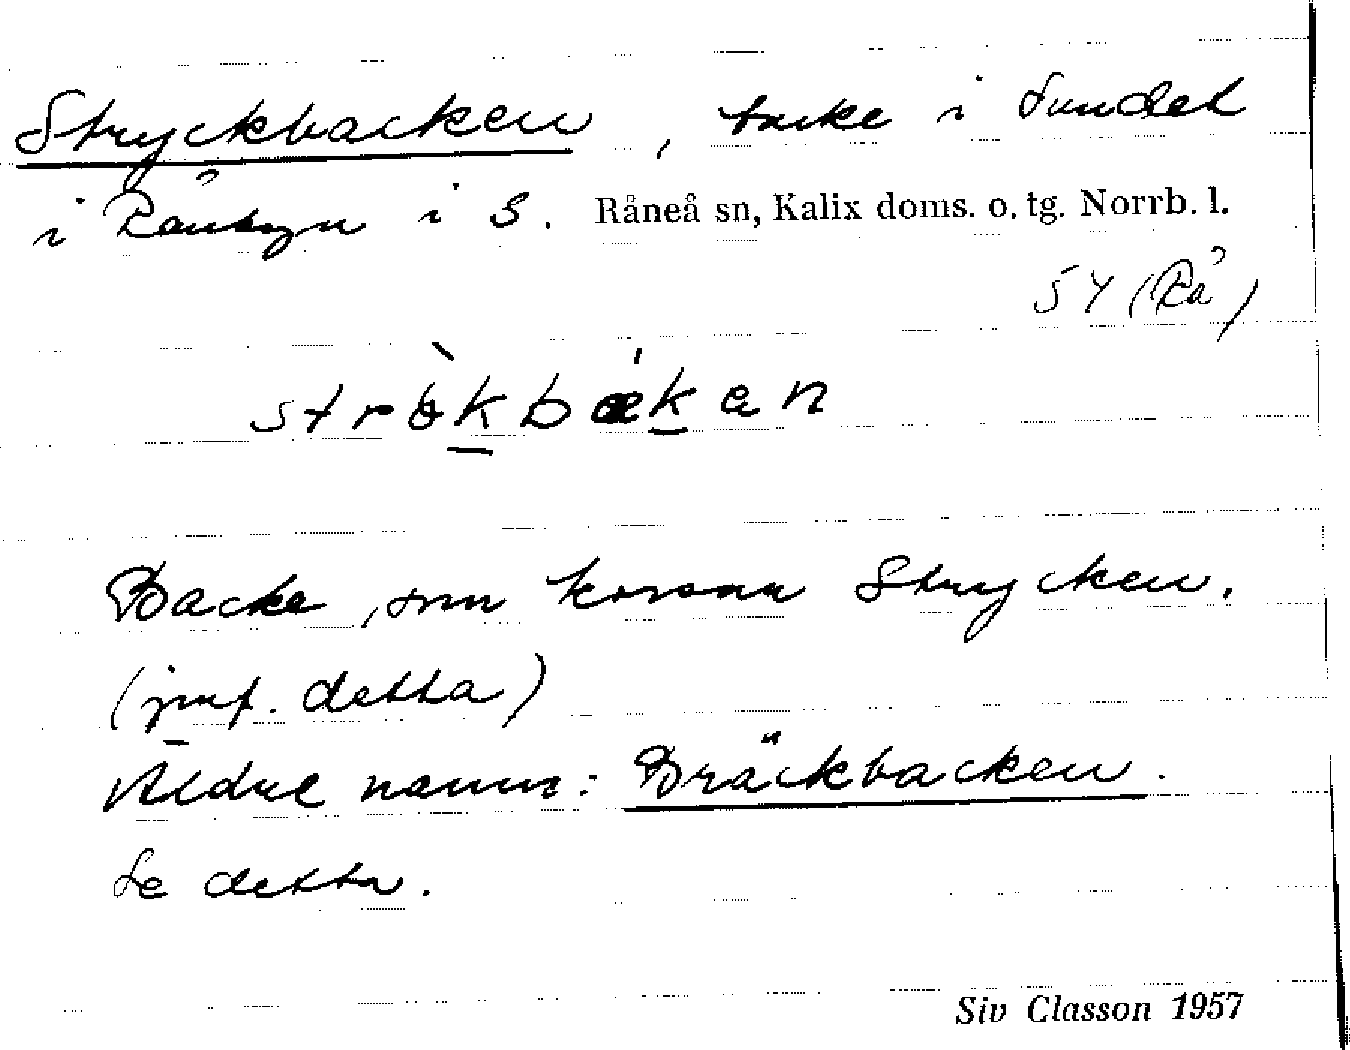 Stryckbacken, backe i Sundet
i Rånbyn i S. Råneå sn, Kalix doms. o. tg. Norrb. l.
5Y (Rå)
Backe, som korsar Strycken.
(jmf. detta)
Äldre namn: Bräckbacken.
Se detta.
Siv Classon 1957